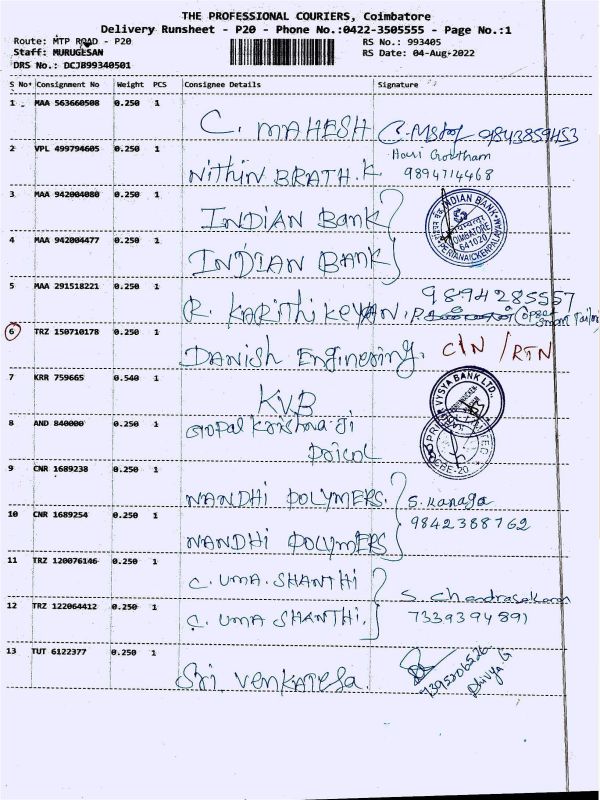 THE PROFESSIONAL COURIERS, Coimbatore
Delivery Runsheet - P20 - Phone No.:0422-3505555 - Page No.:1
Route: MTP ROAD - P20
RS No.: 993405
Staff: MURUGESAN
RS Date: 04-Aug-2022
DRS No.: DCJB99340501
S No Consignment No Weight PCS Consignee Details Signature
1 MAA 563660508 0.250 1
C. MAHESH 9843859453
2 VPL 499794605 0.250 1
Hari Gowtham
Nithin BRATH.K 9894714468
3 MAA 942004080 0.250 1
INDIAN BANK
INDIAN BANK
COIMBATORE
641020
PERIANAICKENPALAYAM
4 MAA 942004477 0.250 1
INDIAN BANK
5 MAA 291518221 0.250 1
R. KARITHIKEYAN. 9894285557
6 TRZ 150710178 0.250 1
Danish Enginering. C/N /RTN
7 KRR 759665 0.540 1
KVB
VYSYA BANK LTD.
8 AND 840000 0.250 1
Gopal Krishna Ji
Pricol
9 CNR 1689238 0.250 1
NANDHI POLYMERS. S. Kanaga
9842388762
10 CNR 1689254 0.250 1
NANDHI POLYMERS
11 TRZ 120076146 0.250 1
C. UMA. SHANTHI
S. Chandrasekaran
12 TRZ 122064412 0.250 1
C. UMA SHANTHI. 7339394891
13 TUT 6122377 0.250 1
Sri. Venkatesa. 7395206526
Dhivya G